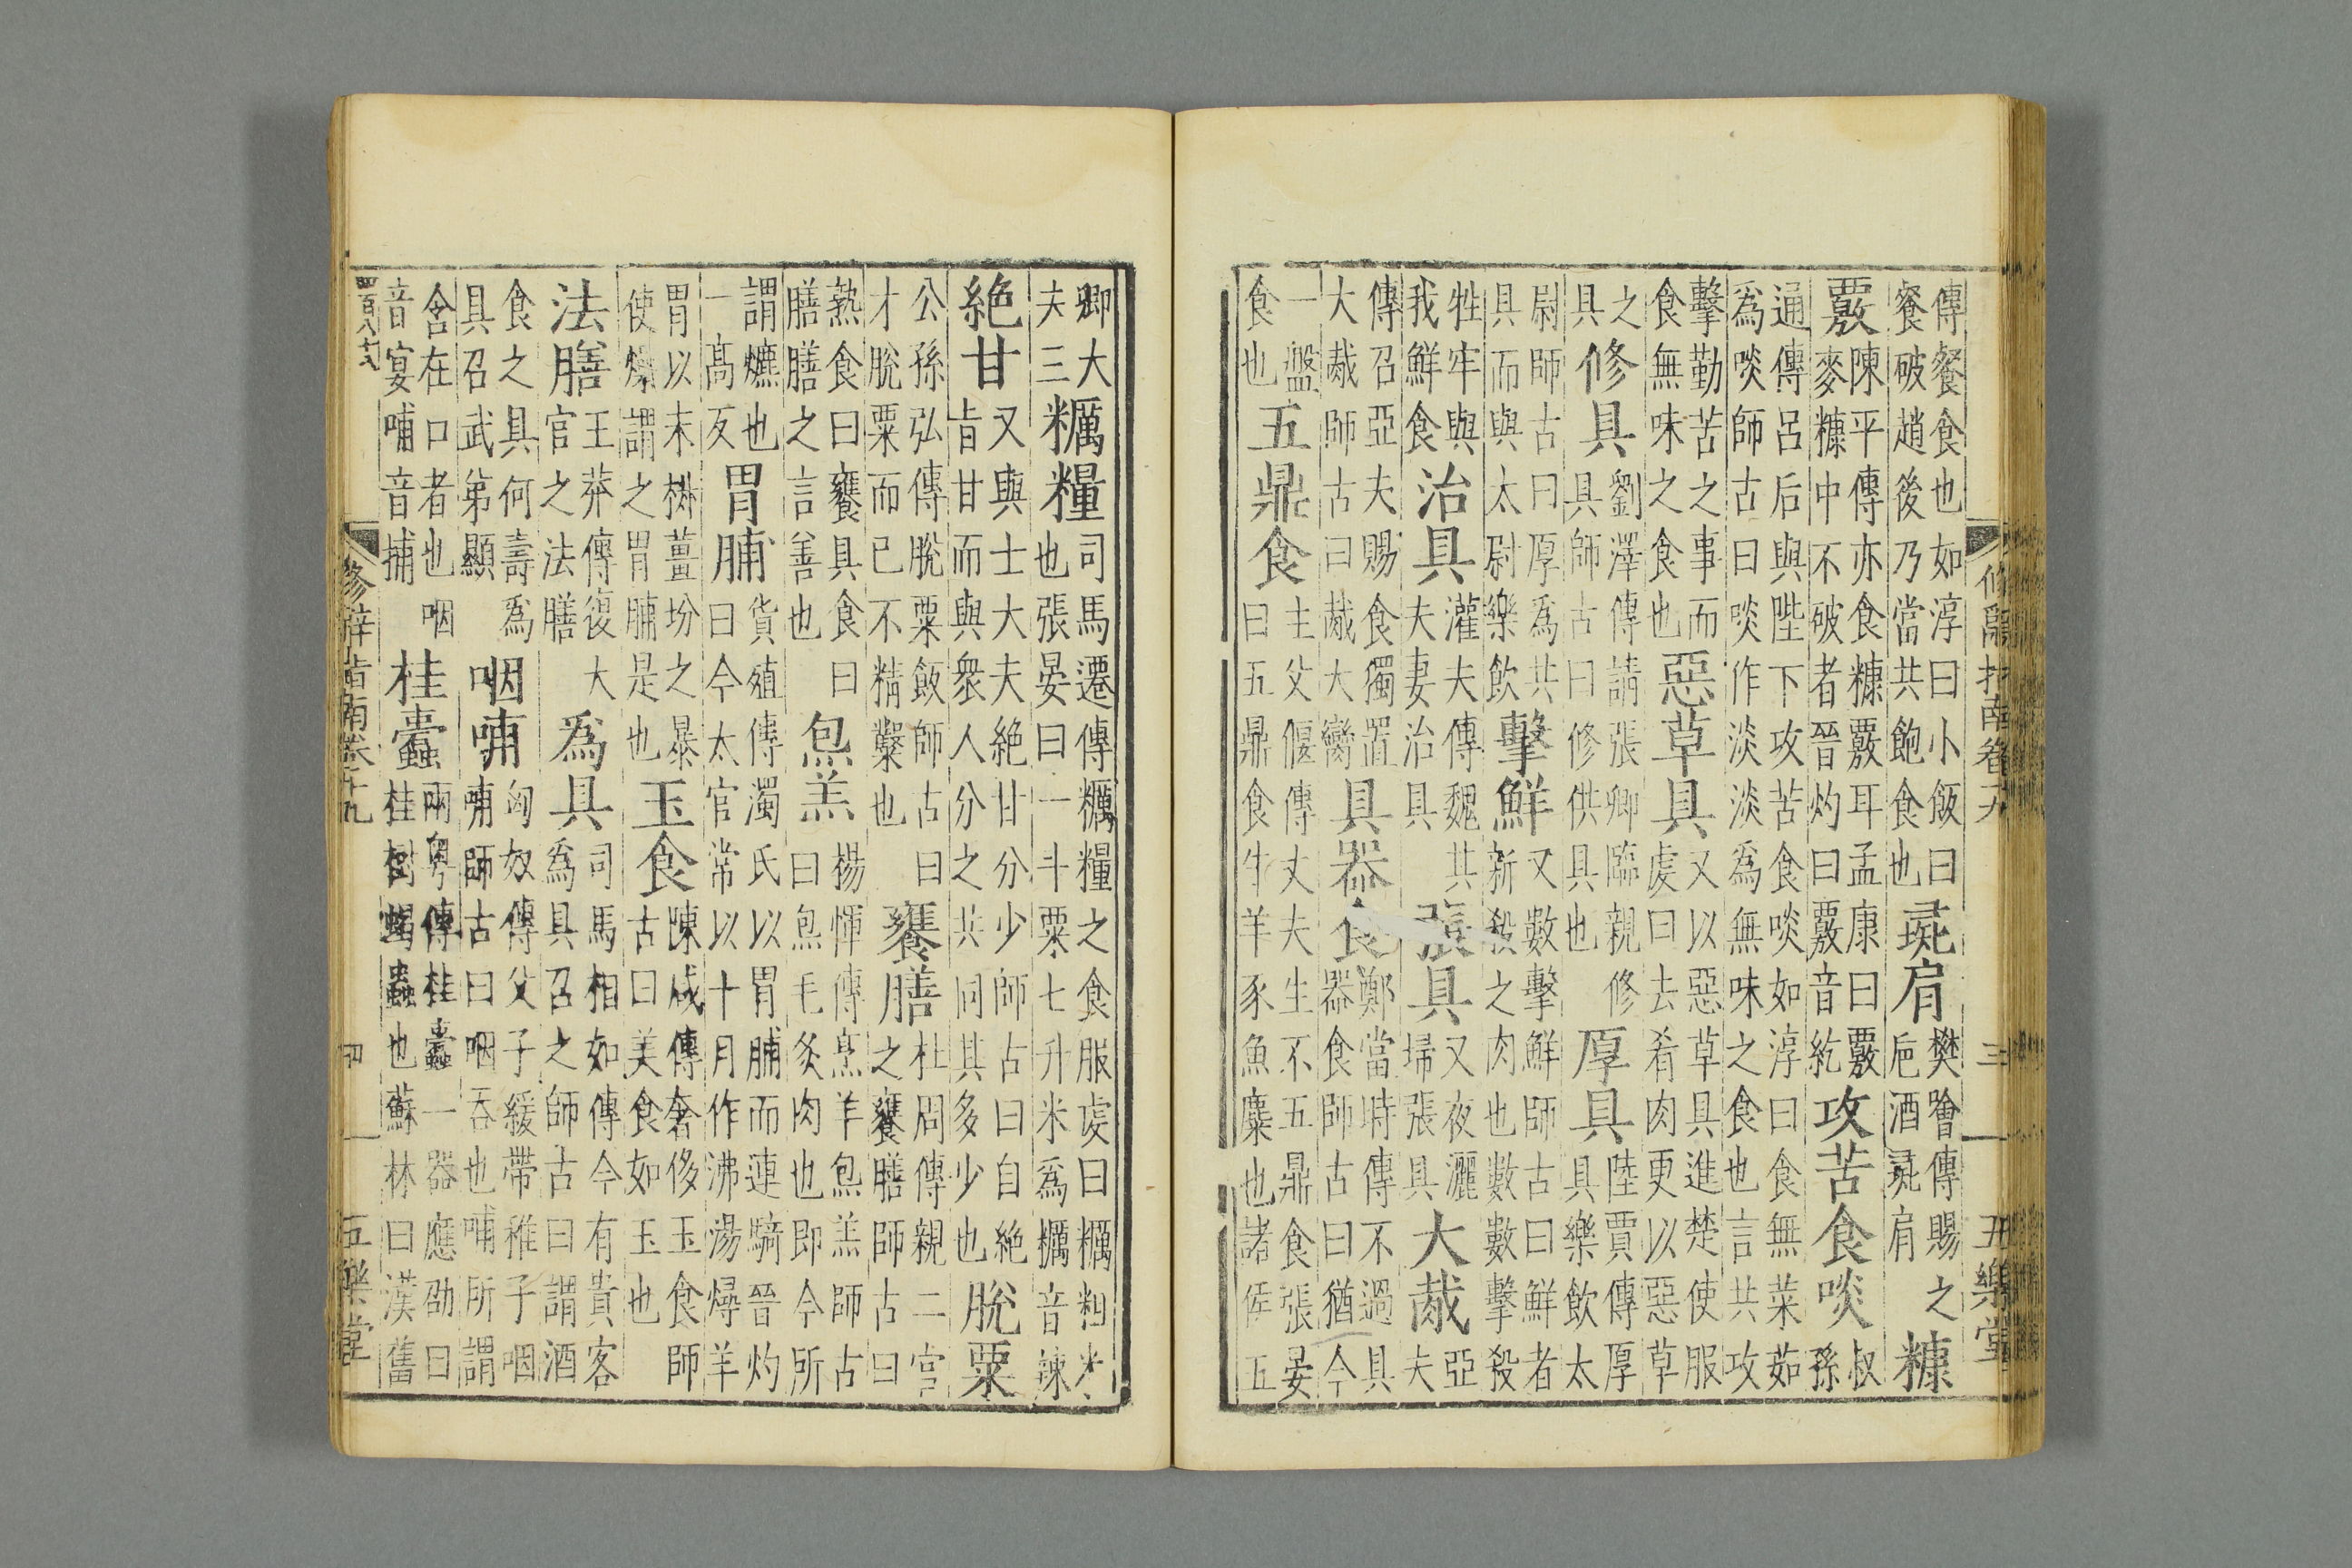 修辭指南卷十九 三 五樂堂
傳餐食也如淳曰小飯曰
餐破趙後乃當共飽食也
彘肩
樊噲傳賜之
巵酒彘肩
糠
覈
陳平傳亦食糠覈耳孟康曰覈
麥糠中不破者晉灼曰覈音紇
攻苦食啖
叔
孫
通傳呂后與陛下攻苦食啖如淳曰食無菜茹
為啖師古曰啖作淡淡為無味之食也言共攻
擊勤苦之事而
食無味之食也
惡草具
又以惡草具進楚使服
虔曰去肴肉更以惡草
之
具
修具
劉澤傳請張卿臨親修
具師古曰修供具也
厚具
陸賈傳厚
具樂飲太
尉師古曰厚為共
具而與太尉樂飲
擊鮮
又數擊鮮師古曰鮮者
新殺之肉也數數擊殺
牲牢與
我鮮食
治具
灌夫傳魏其
夫妻治具
張具
又夜灑
埽張具
大胾
亞
夫
傳召亞夫賜食獨置
大胾師古曰胾大臠
具器食
鄭當時傳不過具
器食師古曰猶今
一盤
食也
五鼎食
主父偃傳丈夫生不五鼎食張晏
曰五鼎食牛羊豕魚麋也諸侯五
卿大
夫三
糲糧
司馬遷傳糲糧之食服虔曰糲粗米
也張晏曰一斗粟七升米為糲音辣
絕甘
又與士大夫絕甘分少師古曰自絕
旨甘而與衆人分之共同其多少也
脫粟
公孫弘傳脫粟飯師古曰
才脫粟而已不精鑿也
饔膳
杜周傳親二宮
之饔膳師古曰
熟食曰饔具食曰
膳膳之言善也
炰羔
楊惲傳烹羊炰羔師古
曰炰毛炙肉也即今所
謂爊也
一高反
胃脯
貨殖傳濁氏以胃脯而連騎晉灼
曰今太官常以十月作沸湯燖羊
胃以末椒薑坋之暴
使燥謂之胃脯是也
玉食
陳咸傳奢侈玉食師
古曰美食如玉也
法膳
王莽傳復大
官之法膳
為具
司馬相如傳今有貴客
為具召之師古曰謂酒
食之具何壽為
具召武弟顯
咽哺
匈奴傳父子緩帶稚子咽
哺師古曰咽吞也哺所謂
含在口者也咽
音宴哺音捕
桂蠹
兩粤傳桂蠹一器應劭曰
桂樹蝎蟲也蘇林曰漢舊
四百八十八 修辭指南卷十九 四 五樂堂